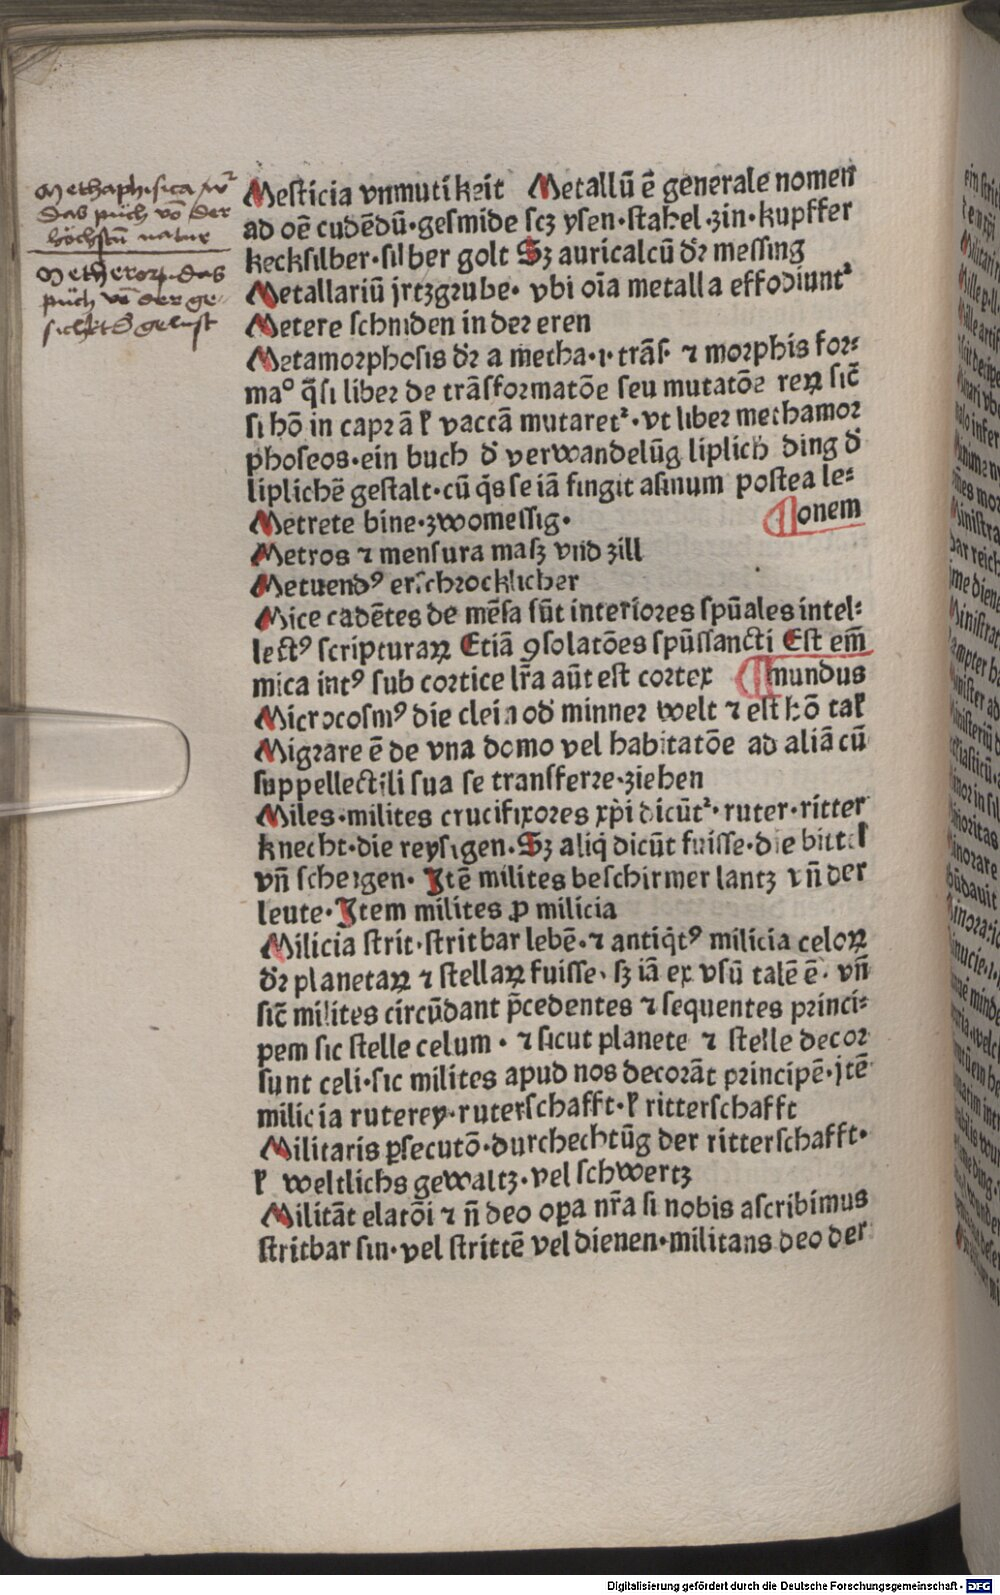 Methaphisica
das půch vō der
höchstn̄ natur
das
půch vō der ge-
Mesticia vnmutikeit Metallū ē generale nomen
ad oē cudēdū·gesmide scꝫ ysen·stahel·zin·kupffer
kecksilber·silber golt Sꝫ auricalcū dr̄ messing
Metallariū jrtzgrube· vbi oīa metalla effodiuntᷣ
Metere schniden in der eren
Metamorphosis dr̄ a metha·i·trās· ⁊ morphis for⸗
ma° q̄si liber de trāsformatōe seu mutatōe reꝝ sic̄
si hō in caprā ꝉ vaccā mutaretᷣ·vt liber methamor
phoseos·ein buch d̄ verwandelūg liplich ding d̄
liplichē gestalt·cū q̄s se iā fingit asinum postea le⸗
Metrete bine·zwomessig· ¶onem
Metros ⁊ mensura masꝫ vnd zill
Metuendꝰ erschrocklicher
Mice cadētes de mēsa sūt interiores spūales intel⸗
lectꝰ scripturaꝝ Etiā ꝯsolatōes spūssancti Est em̄
mica intꝰ sub cortice lr̄a aūt est cortex ¶mundus
Microcosmꝰ die clein od̄ minner welt ⁊ est hō taꝉ
Migrare ē de vna domo vel habitatōe ad aliā cū
suppellectili sua se transferre·ziehen
Miles·milites crucifixores xp̄i dicūtᷣ·ruter·ritter
knecht·die reysigen·Sꝫ aliq̄ dicūt fuisse·die bittel
vn̄ schergen· Jtē milites beschirmer lantz vn̄ der
leute·Jtem milites ꝓ milicia
Milicia strit·stritbar lebē·⁊ antiq̇tꝰ milicia celoꝝ
dr̄ planetaꝝ ⁊ stellaꝝ fuisse· sꝫ iā ex vsū talē ē· vn̄
sic̄ milites circūdant p̄cedentes ⁊ sequentes princi⸗
pem sic stelle celum · ⁊ sicut planete ⁊ stelle decor
sunt celi·sic milites apud nos decorāt principē·jtē
milicia ruterey·ruterschafft·ꝉ ritterschafft
Militaris ꝑsecutō·durchechtūg der ritterschafft·
ꝉ weltlichs gewaltz·vel schwertz
Militāt elatōi ⁊ n̄ deo oꝑa nr̄a si nobis ascribimus
stritbar sin·vel strittē vel dienen·militans deo der
Digitalisierung gefördert durch die Deutsche Forschungsgemeinschaft - DFG